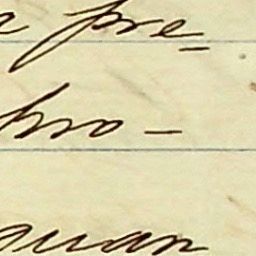 a pre=
pro-
quan